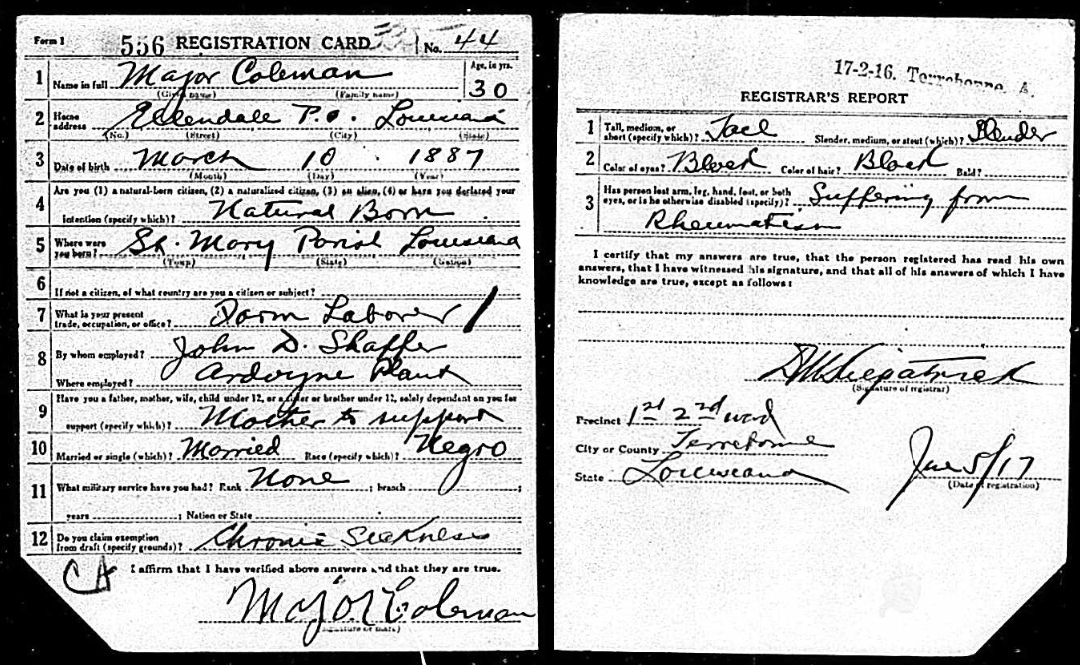 Form 1 556 REGISTRATION CARD No. 44
1 Name in full Major Coleman Age, in yrs. 30
(Given name) (Family name)
2 Home address Ellendale P.O. Louisiana
(No.) (Street) (City) (State)
3 Date of birth March 10 1887
(Month) (Day) (Year)
Are you (1) a natural-born citizen, (2) a naturalized citizen, (3) an alien, (4) or have you declared your
4 intention (specify which)? Natural Born
5 Where were you born? St. Mary Parish Louisiana
(Town) (State) (Nation)
6 If not a citizen, of what country are you a citizen or subject?
7 What is your present trade, occupation, or office? Farm Laborer
8 By whom employed? John D. Shaffer
Where employed? Ardoyne Plant
9 Have you a father, mother, wife, child under 12, or a sister or brother under 12, solely dependent on you for
support (specify which)? Mother to support
10 Married or single (which)? Married Race (specify which)? Negro
11 What military service have you had? Rank None ; branch ;
years ; Nation or State
12 Do you claim exemption from draft (specify grounds)? Chronic Sickness
I affirm that I have verified above answers and that they are true.
Major Coleman
(Signature or mark)
17-2-16. Terrebonne, A.
REGISTRAR'S REPORT
1 Tall, medium, or short (specify which)? Tall Slender, medium, or stout (which)? Slender
2 Color of eyes? Black Color of hair? Black Bald?
3 Has person lost arm, leg, hand, foot, or both eyes, or is he otherwise disabled (specify)? Suffering from
Rheumatism
I certify that my answers are true, that the person registered has read his own
answers, that I have witnessed his signature, and that all of his answers of which I have
knowledge are true, except as follows:
(Signature of registrar)
Precinct 1st 2nd ward
City or County Terrebonne
State Louisiana
June 5/17
(Date of registration)